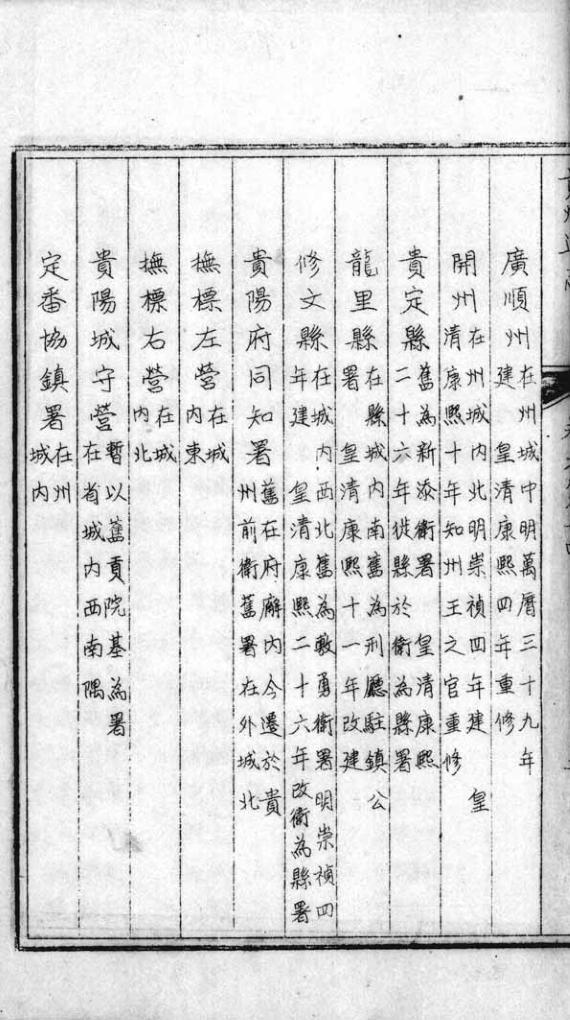 廣順州在州城中明萬曆三十九年建 皇清康熙四年重修
開州在州城內北明崇禎四年建 皇清康熙十年知州王之官重修
貴定縣舊為新添衛署 皇清康熙二十六年徙縣於衛為縣署
龍里縣在縣城內南舊為刑廳駐鎮公署 皇清康熙十一年改建
修文縣在城內西北舊為敷勇衛署明崇禎四年建 皇清康熙二十六年改衛為縣署
貴陽府同知署舊在府廨內今遷於貴州前衛舊署在外城北
撫標左營在城內東
撫標右營在城內北
貴陽城守營暫以舊貢院基為署在省城內西南隅
定番協鎮署在州城內